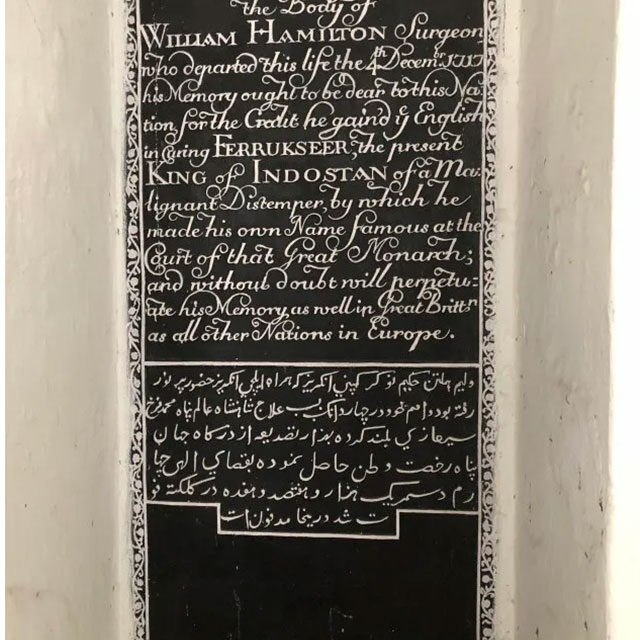 the Body of
WILLIAM HAMILTON Surgeon
who departed this life the 4th Decemr. 1717
his Memory ought to be dear to this Na-
tion, for the Credit he gain'd ye English
in Curing FERRUKSEER, the present
KING of INDOSTAN of a Ma-
lignant Distemper, by which he
made his own Name famous at the
Court of that Great Monarch;
and without doubt will perpetu-
ate his Memory, as well in Great Brittn
as all other Nations in Europe.
وليم هملتن حكيم نوكر كمپني انگريز كه همراه ايلچي انگريز حضور پر نور
رفته بود و اسم خود در چار دانگ بسبب علاج شاهنشاه عالم پناه محمد فرخ
سير غازي بلند كرده بهزار تصديعه از درگاه جهان
پناه رخصت وطن حاصل نموده بقضاي الهي چها
رم دسمبر يكهزار و هفتصد و هفده در كلكته فو
ت شد درينجا مدفونست